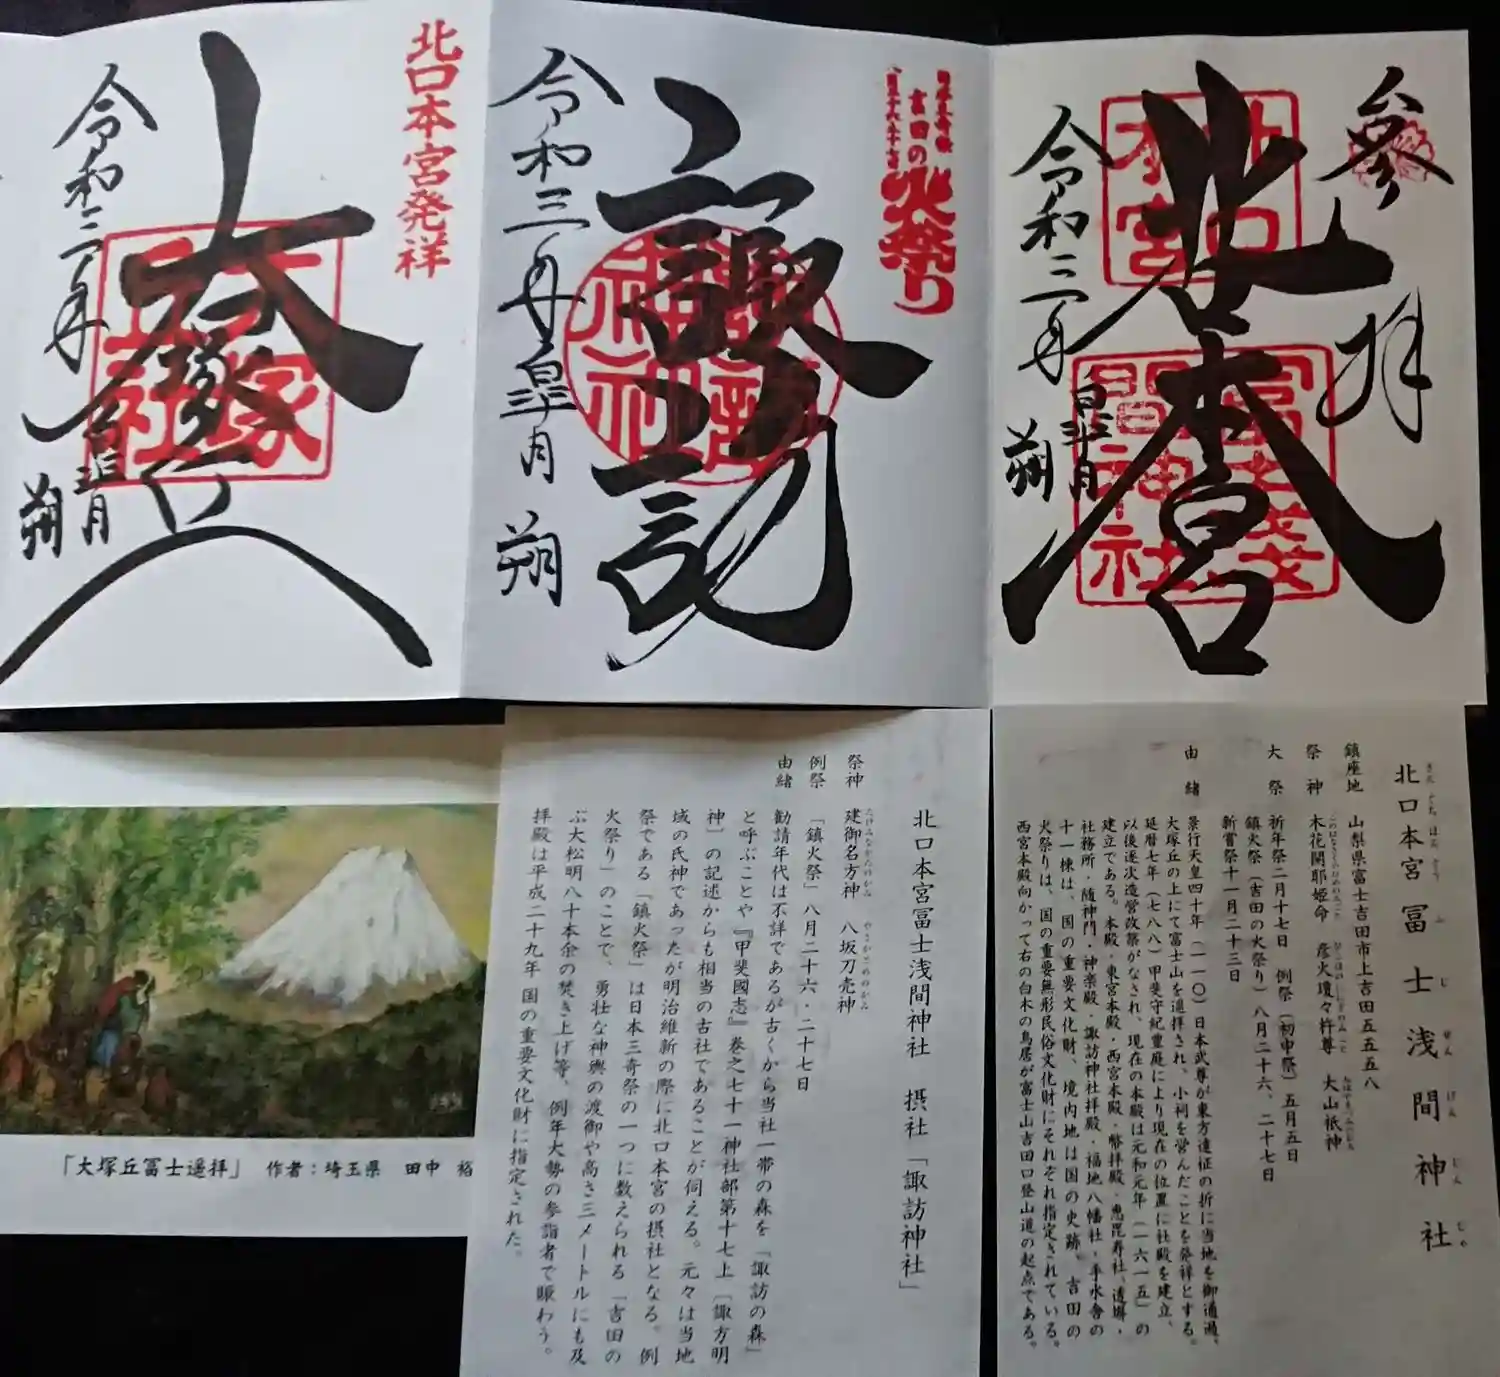 参拝
北口本宮
北口本宮
冨士浅間神社
令和三年
皐月
朔
吉田の火祭り
諏訪
神社
令和三年皐月
朔
北口本宮発祥
大塚丘
大塚
丘社
令和三年
皐月
朔
北口本宮冨士浅間神社
鎮座地　山梨県富士吉田市上吉田五五五八
祭神　木花開耶姫命　彦火瓊々杵尊　大山祗神
大祭　祈年祭二月十七日　例祭（初申祭）五月五日
鎮火祭（吉田の火祭り）八月二十六、二十七日
新嘗祭十一月二十三日
由緒　景行天皇四十年（一一〇）日本武尊が東方遠征の折に当地を御通過、
大塚丘の上にて富士山を遥拝され、小祠を営んだことを発祥とする。
延暦七年（七八八）甲斐守紀豊庭により現在の位置に社殿を建立、
以後逐次造営改築がなされ、現在の本殿は元和元年（一六一五）の
建立である。本殿・東宮本殿・西宮本殿・幣拝殿・恵毘寿社、透塀・
社務所・随神門・神楽殿・諏訪神社拝殿・福地八幡社・手水舎の
十一棟は、国の重要文化財、境内地は国の史跡。吉田の
火祭りは、国の重要無形民俗文化財にそれぞれ指定されている。
西宮本殿向かって右の白木の鳥居が富士山吉田口登山道の起点である。
北口本宮冨士浅間神社　摂社「諏訪神社」
祭神　建御名方神　八坂刀売神
例祭　「鎮火祭」八月二十六・二十七日
由緒　勧請年代は不詳であるが古くから当社一帯の森を「諏訪の森」
と呼ぶことや『甲斐國志』巻之七十一神社部第十七上〔諏方明
神〕の記述からも相当の古社であることが伺える。元々は当地
域の氏神であったが明治維新の際に北口本宮の摂社となる。例
祭である「鎮火祭」は日本三奇祭の一つに数えられる「吉田の
火祭り」のことで、勇壮な神輿の渡御や高さ三メートルにも及
ぶ大松明八十本余の焚き上げ等、例年大勢の参詣者で賑わう。
拝殿は平成二十九年国の重要文化財に指定された。
「大塚丘冨士遥拝」　作者：埼玉県　田中　裕